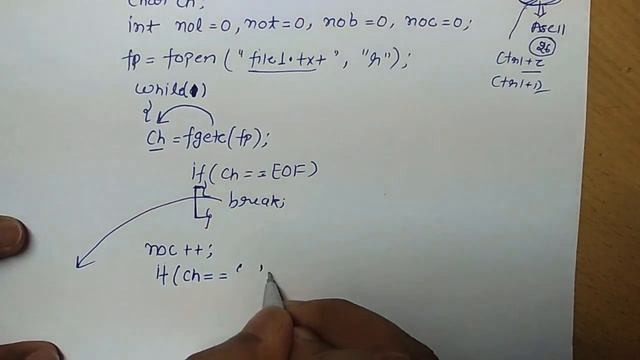 char ch;
int nol=0, not=0, nob=0, noc=0;
fp=fopen("file1.txt","r");
while(1)
{
ch=fgetc(fp);
if(ch==EOF)
{
break;
}
noc++;
if(ch==' '
ASCII
26
Ctrl+z
Ctrl+D